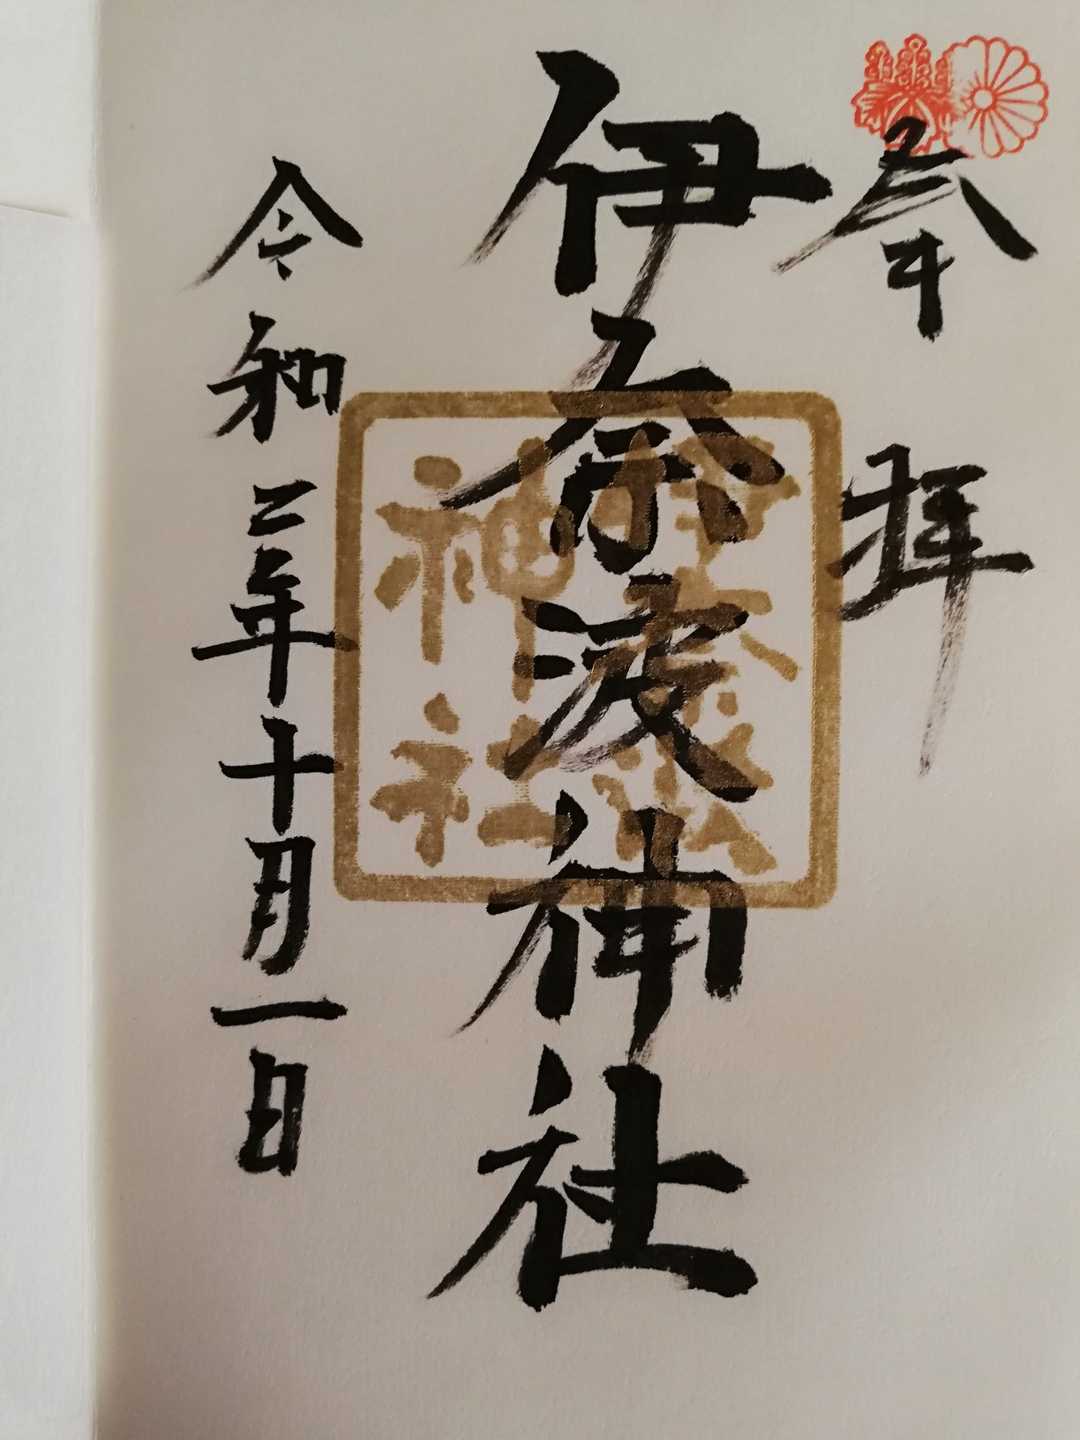 奉拝
伊奈波神社
令和二年十月一日
伊奈波
神社